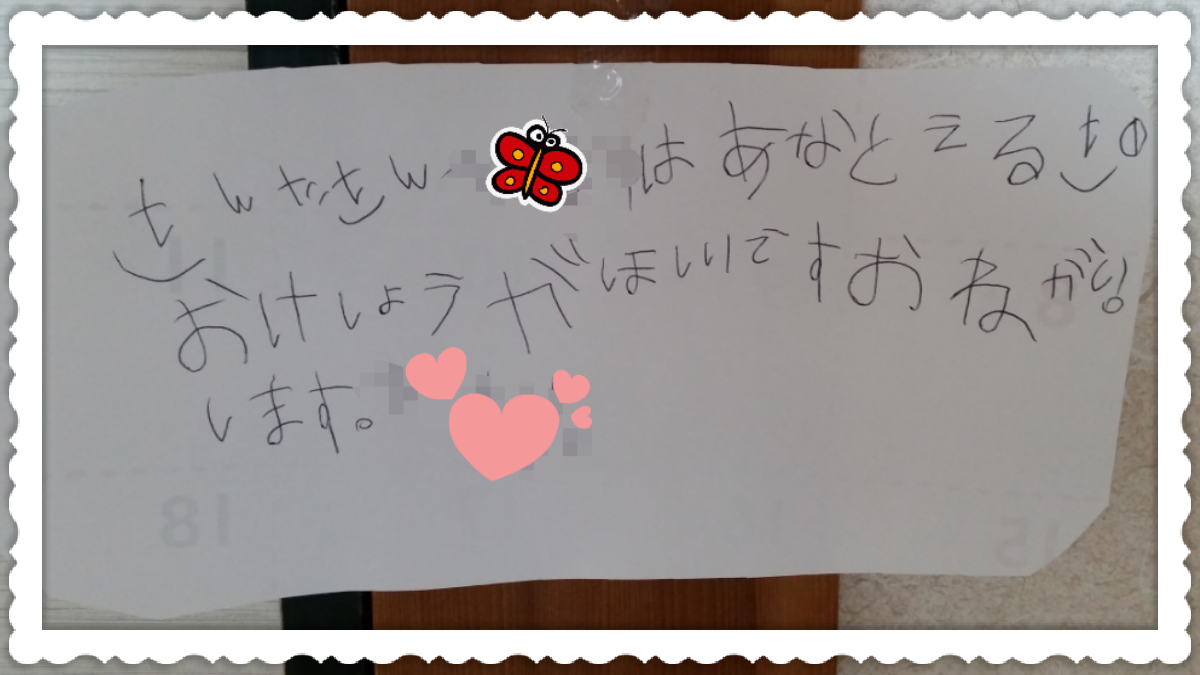 さんたさん はあなとえるさの
おけしょうがほしいですおねがい
します。